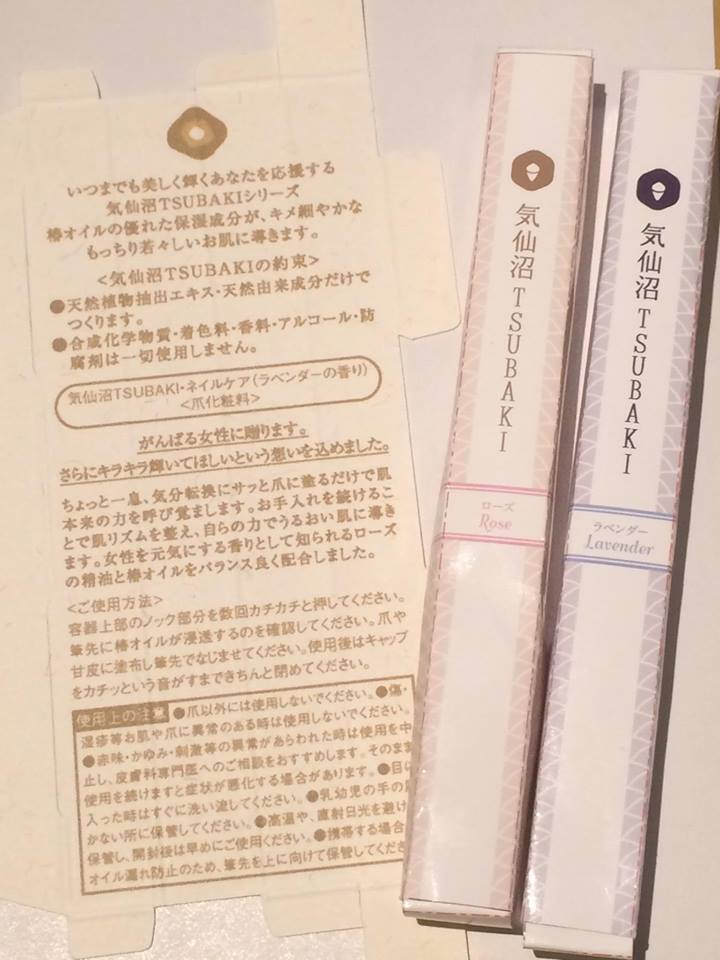 いつまでも美しく輝くあなたを応援する
気仙沼TSUBAKIシリーズ
椿オイルの優れた保湿成分が、キメ細やかな
もっちり若々しいお肌に導きます。
<気仙沼TSUBAKIの約束>
●天然植物抽出エキス・天然由来成分だけで
つくります。
●合成化学物質・着色料・香料・アルコール・防
腐剤は一切使用しません。
気仙沼TSUBAKI・ネイルケア(ラベンダーの香り)
<爪化粧料>
がんばる女性に贈ります。
さらにキラキラ輝いてほしいという想いを込めました。
ちょっと一息、気分転換にサッと爪に塗るだけで肌
本来の力を呼び覚まします。お手入れを続けるこ
とで肌リズムを整え、自らの力でうるおい肌に導き
ます。女性を元気にする香りとして知られるローズ
の精油と椿オイルをバランス良く配合しました。
<ご使用方法>
容器上部のノック部分を数回カチカチと押してください。
筆先に椿オイルが浸透するのを確認してください。爪や
甘皮に塗布し筆先でなじませてください。使用後はキャップ
をカチッという音がすまできちんと閉めてください。
使用上の注意 ●爪以外には使用しないでください。●傷・
湿疹等お肌や爪に異常のある時は使用しないでください。
●赤味・かゆみ・刺激等の異常があらわれた時は使用を中
止し、皮膚科専門医へのご相談をおすすめします。そのまま
使用を続けますと症状が悪化する場合があります。●目に
入った時はすぐに洗い流してください。●乳幼児の手の届
かない所に保管してください。●高温や、直射日光を避け
保管し、開封後は早めにご使用ください。●携帯する場合
オイル漏れ防止のため、筆先を上に向けて保管してくださ
気仙沼TSUBAKI
ローズ
Rose
気仙沼TSUBAKI
ラベンダー
Lavender